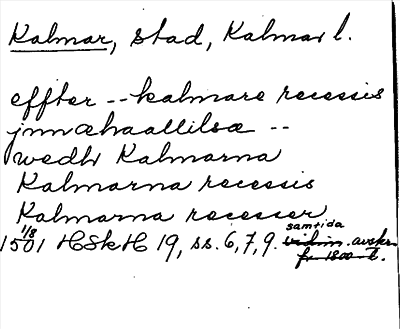 Kalmar, stad, Kalmar l.
effter -- kalmare recessis
jnnæhaallilsæ --
wedh Kalmarna
Kalmarna recessis
Kalmarna recesser
1501 1/8 HSkH 19, ss. 6, 7, 9. samtida vidim. avskr.
fr. 1500-t.